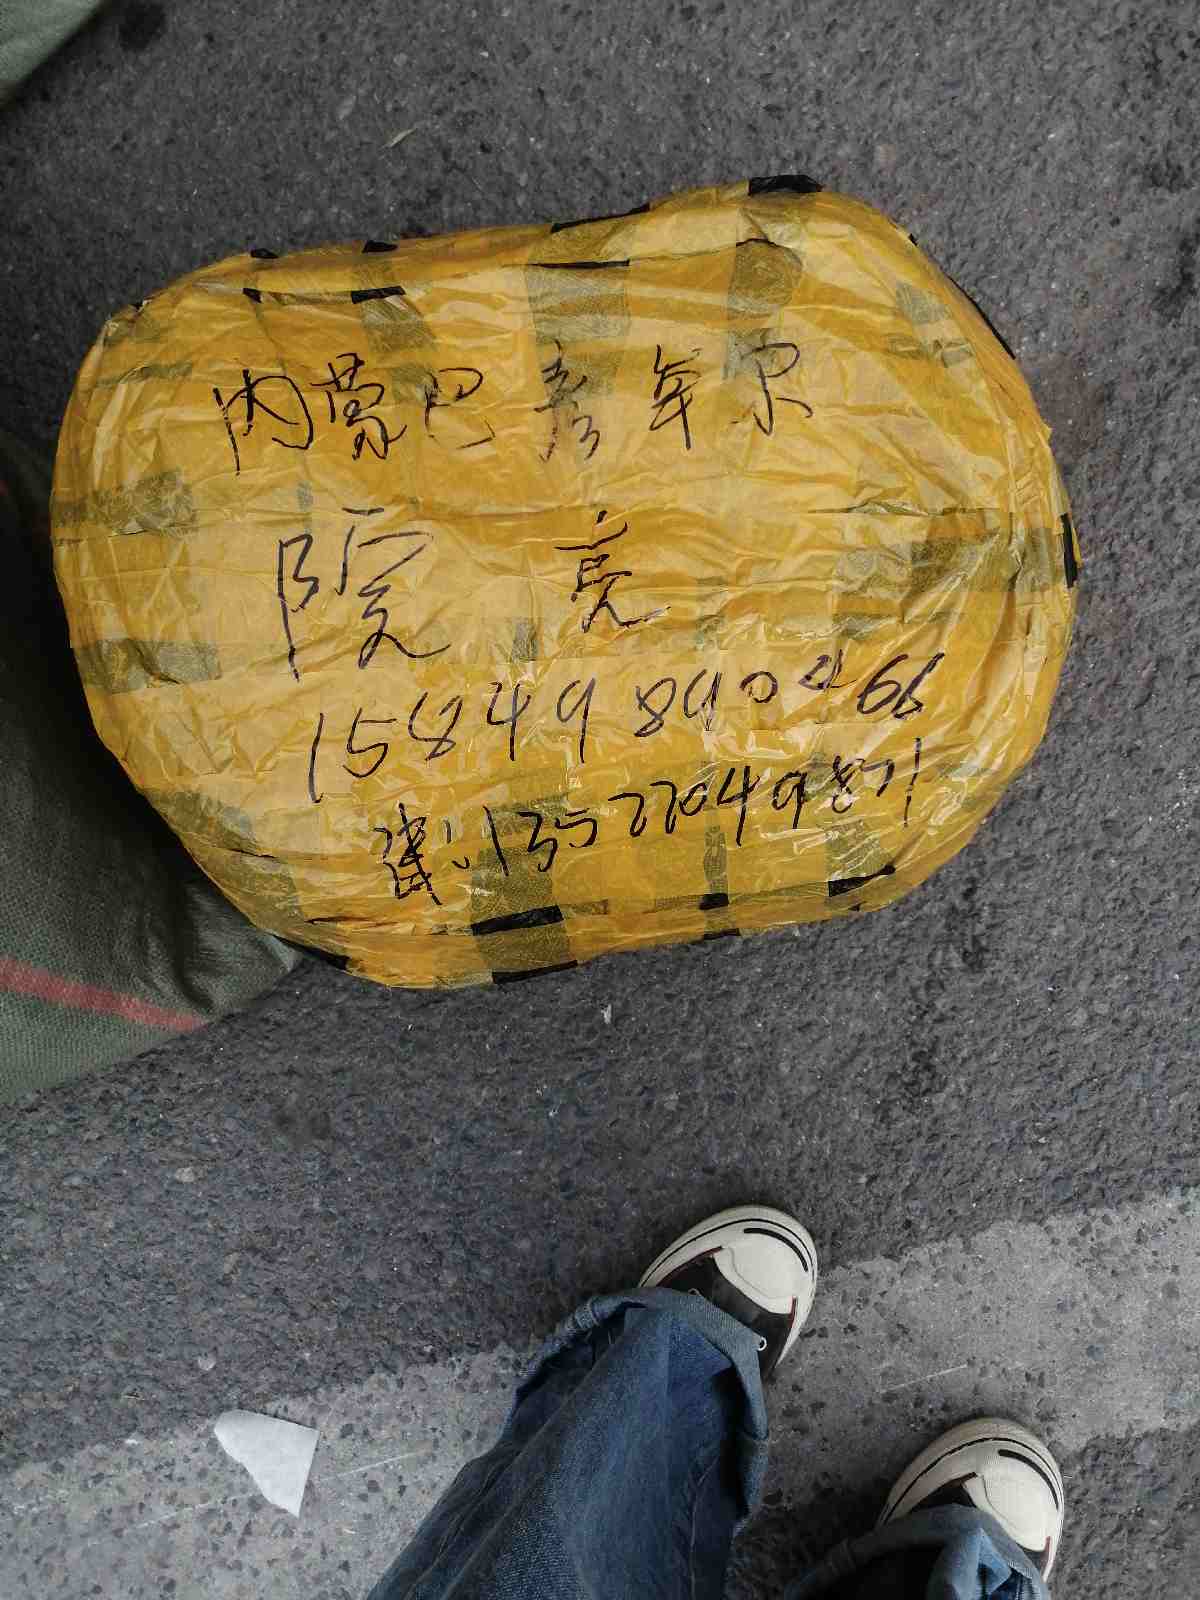 内蒙巴彦卓尔
段 亮
15849890466
建:13522049871